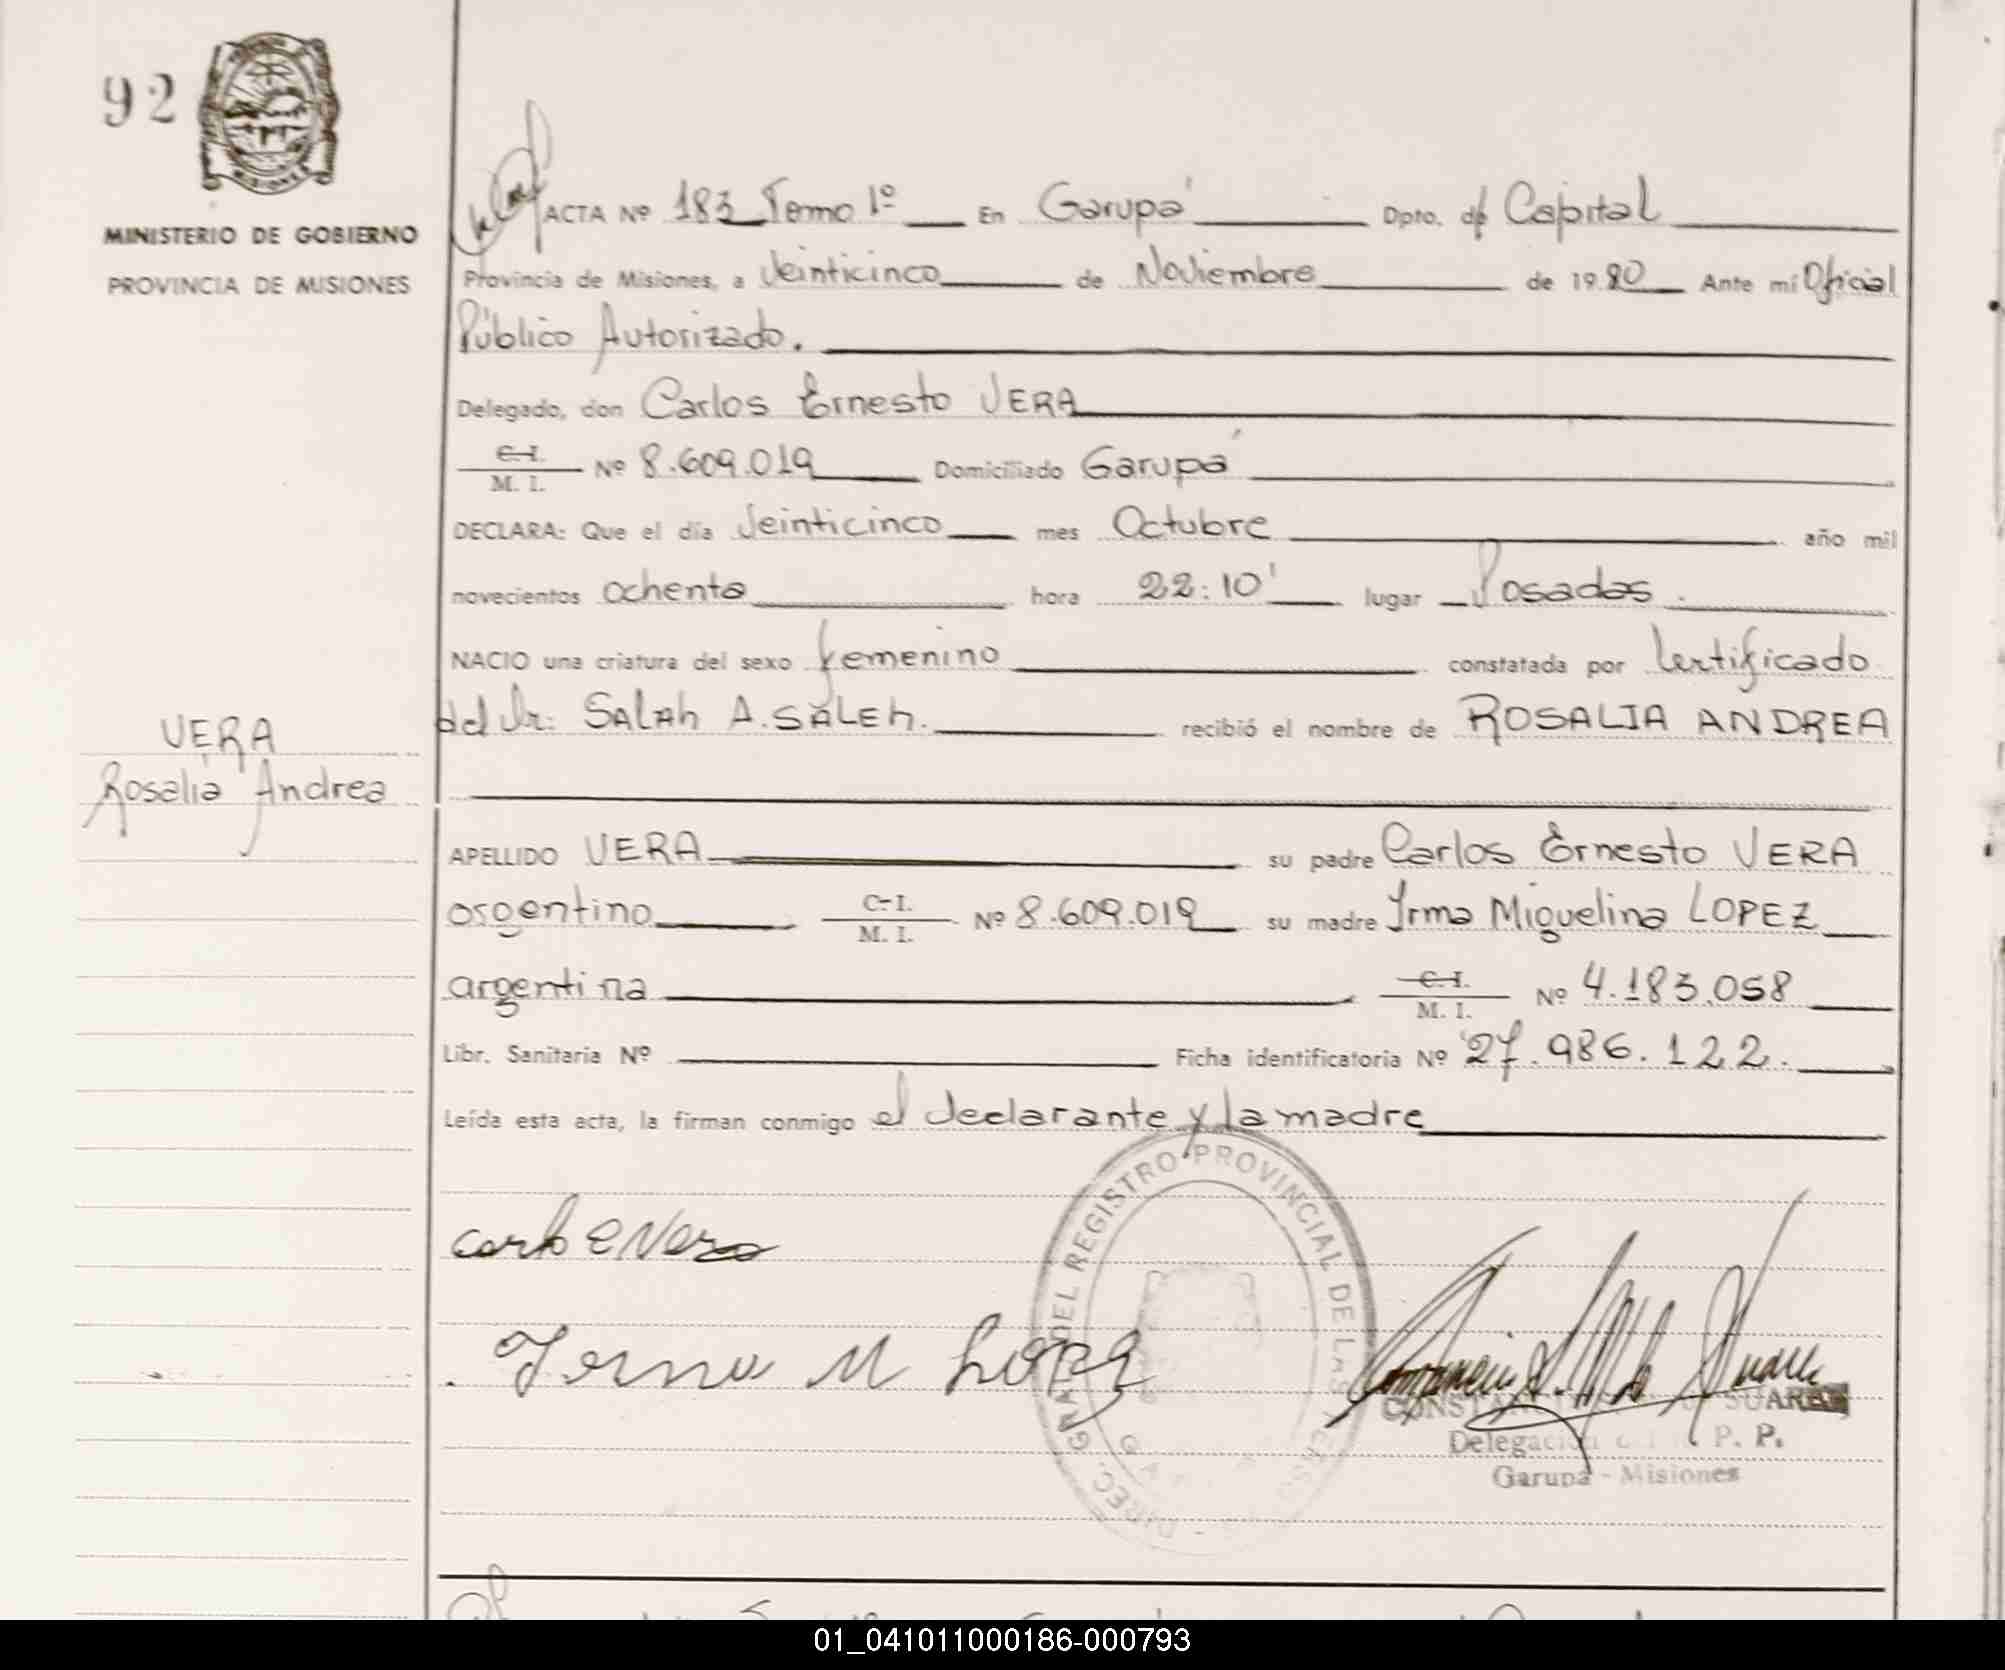 92
MISIONES
MINISTERIO DE GOBIERNO
PROVINCIA DE MISIONES
VERA
Rosalia Andrea
ACTA Nº 183 Tomo 1º En Garupá Dpto. de Capital
Provincia de Misiones, a Veinticinco de Noviembre de 1980 Ante mí Oficial
Público Autorizado.
Delegado, don Carlos Ernesto VERA
C. I.
M. I. Nº 8.609.019 Domiciliado Garupá
DECLARA: Que el día Veinticinco mes Octubre año mil
novecientos ochenta hora 22:10' lugar Posadas.
NACIO una criatura del sexo femenino constatada por Certificado
del Dr. SALAH A. SALEH. recibió el nombre de ROSALIA ANDREA
APELLIDO VERA su padre Carlos Ernesto VERA
argentino C-I.
M. I. Nº 8.609.019 su madre Irma Miguelina LOPEZ
argentina C-I.
M. I. Nº 4.183.058
Libr. Sanitaria Nº Ficha identificatoria Nº 27.986.122.
Leída esta acta, la firman conmigo el declarante y la madre
DIREC. GRAL. DEL REGISTRO PROVINCIAL DE LAS
Carlos E Vera
Irma M Lopez
SUAREZ
Delegación P. P.
Garupá - Misiones
01_041011000186-000793